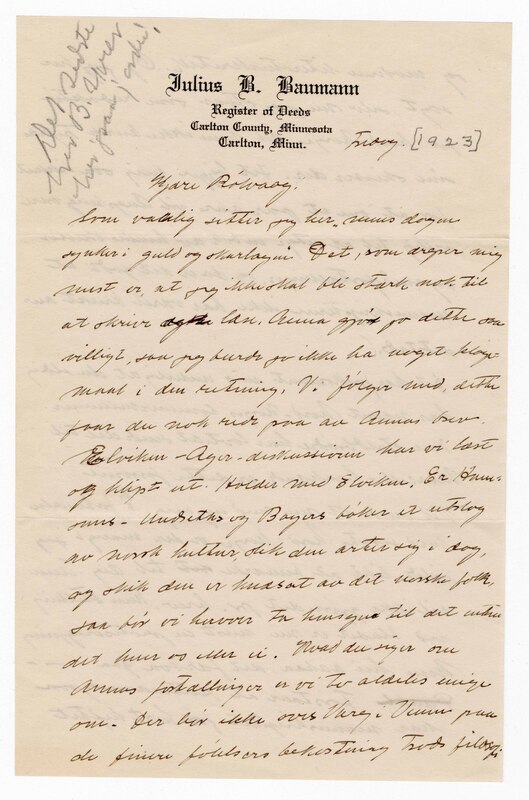 Det sidste
brev B. skrev
Julius B. Baumann
Register of Deeds
Carlton County, Minnesota
Carlton, Minn.
[1923]
Kjære Rolvaag.
Som vanlig sitter jeg her, "mens dagen
synker i guld og skarlagen". Det, som dreper mig
mest er, at jeg ikke skal bli stærk nok til
at skrive læs. Anna gjør jo dette saa
villigt, saa jeg burde jo ikke ha noget klage-
maal i den retning. Vi følger med, dette
faar du nok rede paa av Annas brev.
Elviken-Ager-diskussionen har vi læst
og klipt ut. Holder med Elviken. Er Ham-
suns- Undsets og Bojers bøker et utslag
av norsk kultur slik den arter sig i dag,
og slik den er hos av det norske folk,
saa bør vi herover ta til det enten
det huer os eller ei. Hvad du siger om
Annas fortællinger er vi to aldeles enige
om. Der bør ikke overs i Veum paa
de finere følelsers bekostning trods